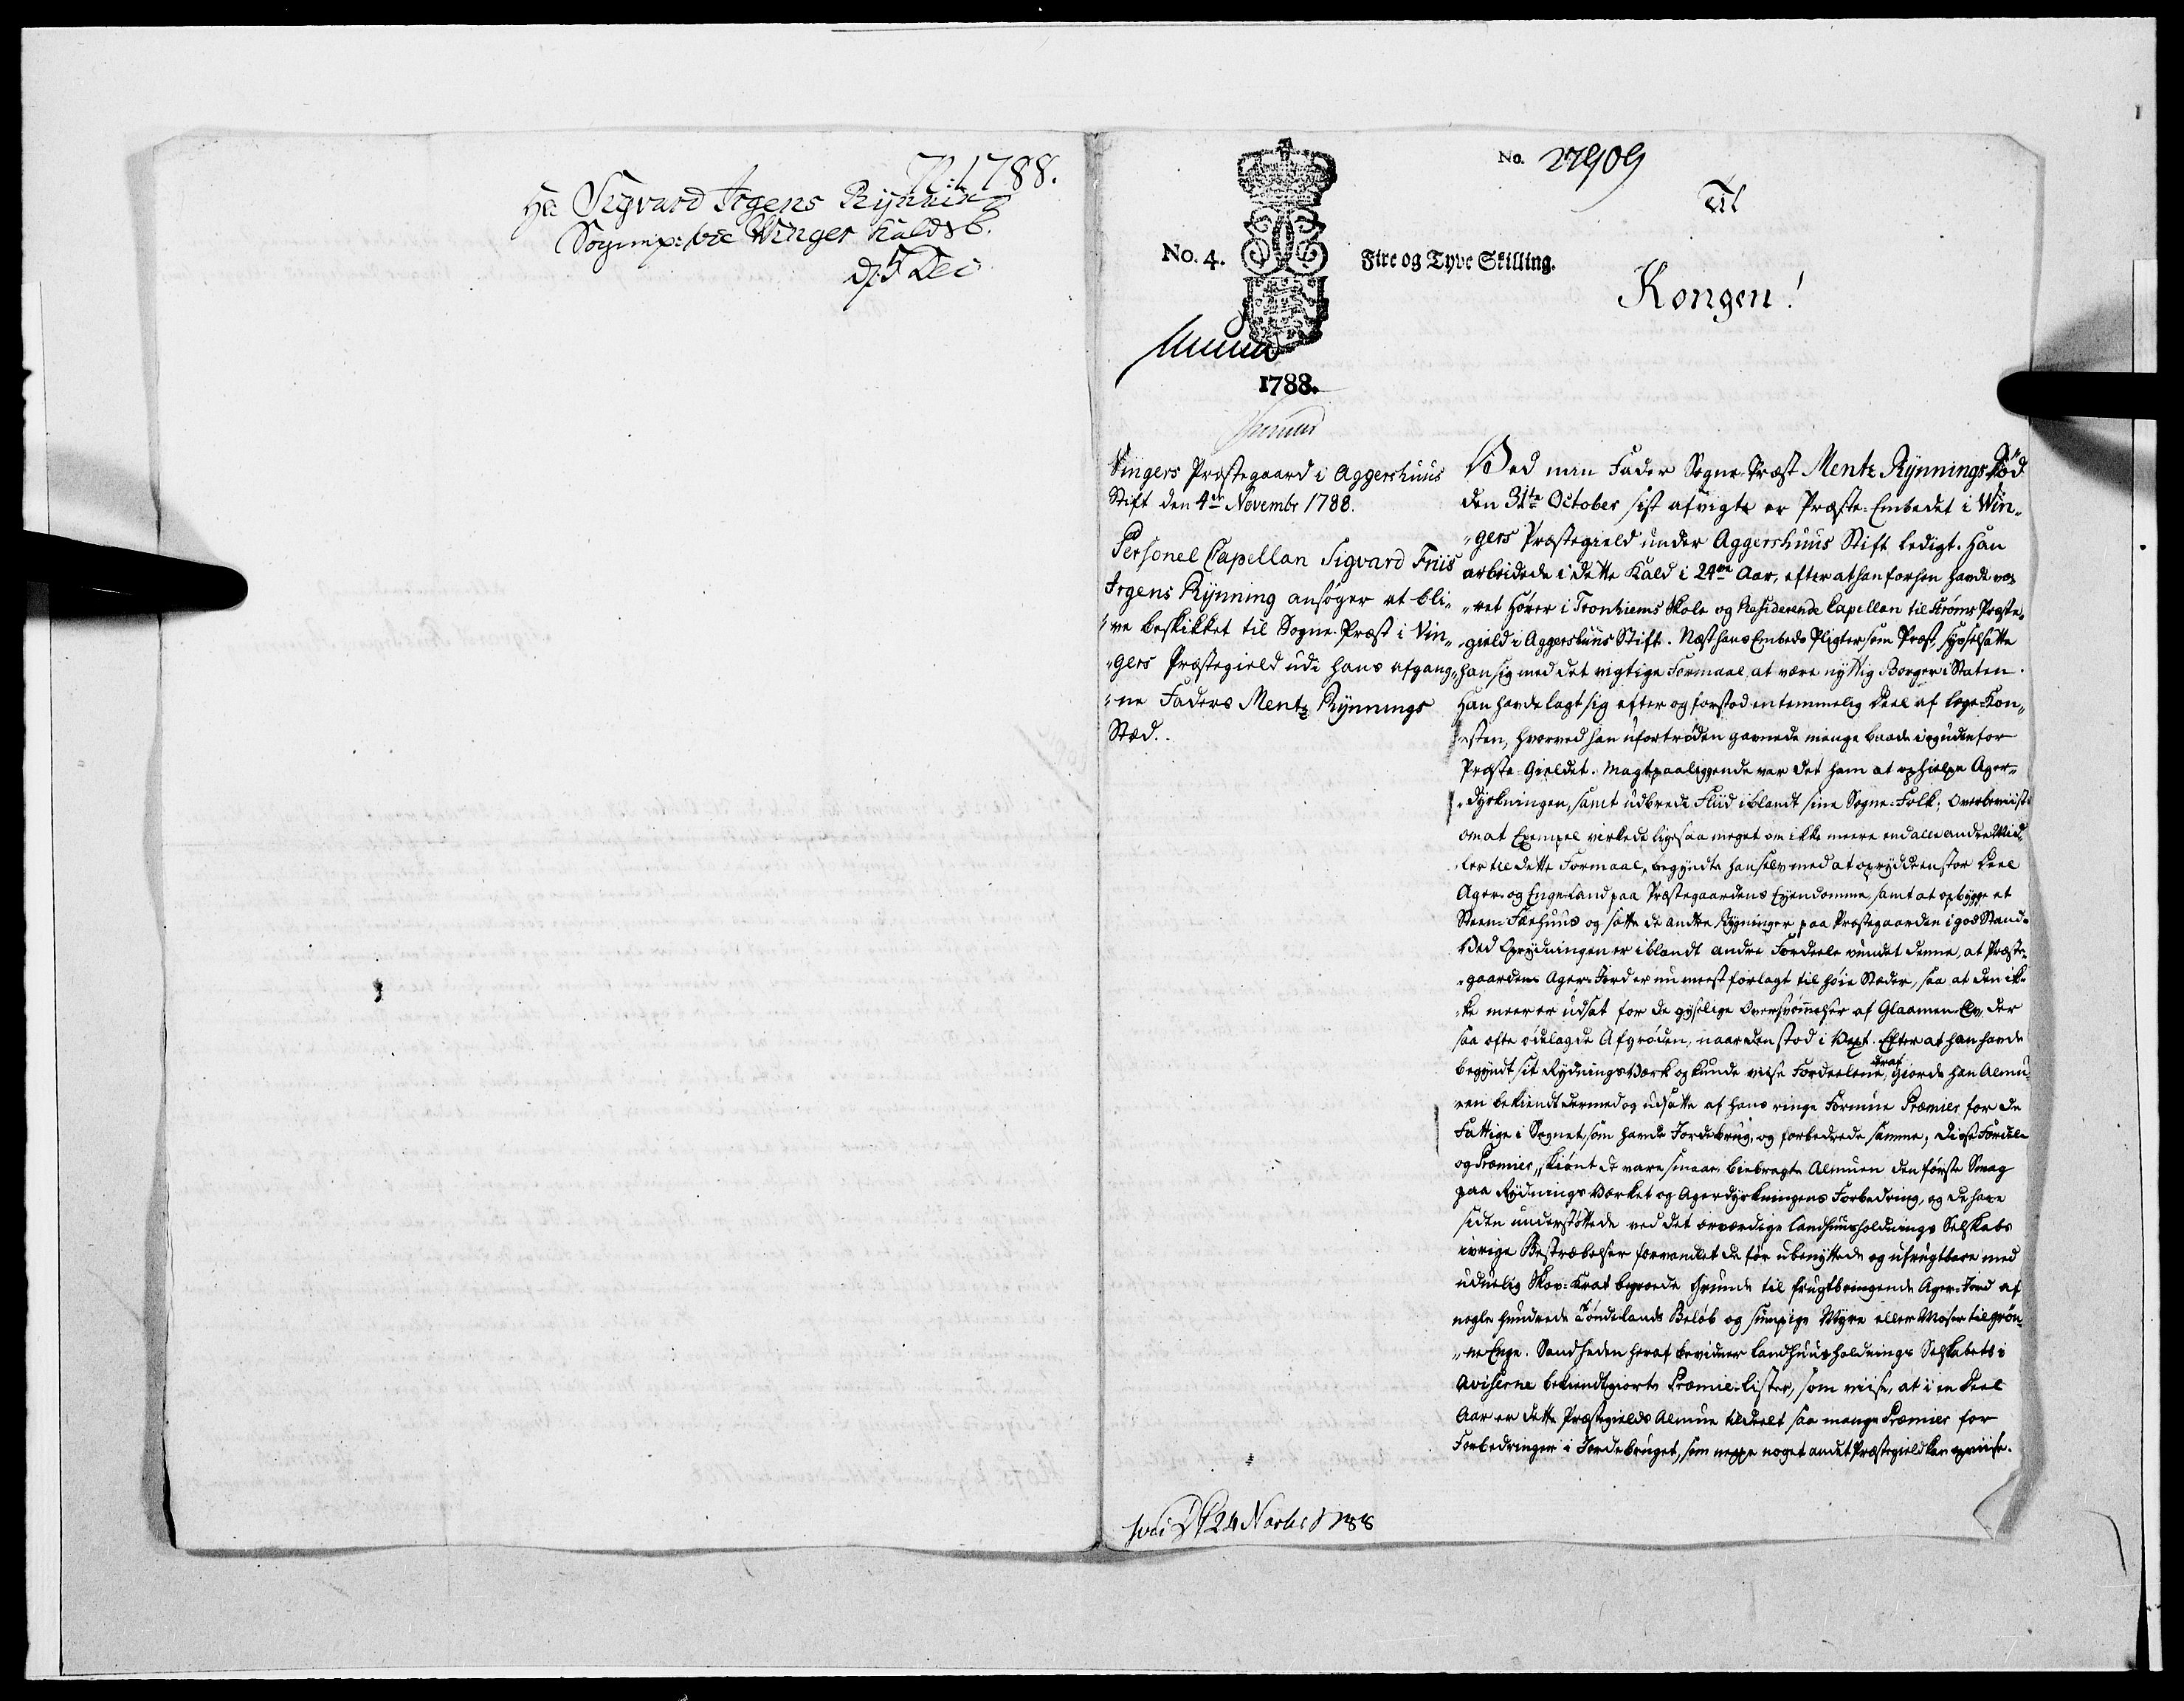 N. 1788.
Hr. Sigvard Irgens Rynning
Sognepr: ved Winger Kald &c.
d. 5 Dec
No. 27909
Til
No. 4.
Fire og Tyve Skilling.
Kongen!
1788.
Vingers Præstegaard i Aggershuus
Stift den 4de Novembr 1788.
Personel Capellan Sigvard Friis
Irgens Rynning ansøger at bli-
"ve beskikket til Sogne-Præst i Vin-
"gers Præstegield udi hans afgang-
"ne Faders Mentz Rynnings
Stæd.
Ved min Fader Sogne-Præst Mentz Rynnings Død
den 31te October sist afvigte er Præste-Embedet i Win-
"gers Præstegield under Aggershuus Stift ledigt. Han
arbeidede i dette Kald i 24ve Aar, efter at han forhen havde væ-
"ret Hører i Tronhiems Skole og Residerende Capellan til Strøms Præste-
"gield i Aggershuus Stift. Næst hans Embeds Pligter som Præst, sysselsatte
han sig med det vigtige Formaal at være nyttig Borger i Staten.
Han havde lagt sig efter og forstod en temmelig Deel af Læge-Kon-
"sten, hvorved han ufortrøden gavnede mange baade i og udenfor
Præste-Gieldet. Magtpaaliggende var det ham at ophielpe Ager-
"dyrkningen, samt udbrede Fliid iblandt sine Sogne-Folk; Overbeviist
om at Exempel virkede ligesaa meget om ikke meere end alle andre Mid-
ler til dette Formaal, begyndte han selv med at oprydde en stor Deel
Ager- og Enge-Land paa Præstegaardens Eyendomme, samt at opbygge et
Steen-Fæehuus og satte de andre Bygninger paa Præstegaarden i god Stand.
Ved Oprydningen er iblandt andre Fordeele vundet denne, at Præste-
"gaardens Ager-Jord er nu meest forlagt til høie Stæder, saa at den ik-
"ke meer er udsat for de gyselige Oversvømmelser af Glaamen-Elv, der
saa ofte ødelagde Afgrøden, naar den stod i Vext. Efter at han havde
begyndt sit Rydnings Værk og kunde viise Fordeelene deraf, giorde han Almu-
en bekiendt dermed og udsatte af hans ringe Formue Præmier for de
Fattige i Sognet, som havde Jordebrug, og forbedrede samme; disse Fordele
og Præmier, skiønt de vare smaae, biebragte Almuen den første Smag
paa Rydnings Værket og Agerdyrkningens Forbedring, og de have
siden understøttede ved det ærværdige Landhuusholdnings Selskabs
ivrige Bestræbelser forvandlet de før ubenyttede og ufrugtbare med
uduelig Skov-Krat begroede Grunde til frugtbringende Ager-Jord af
nogle hundrede Tøndelands Beløb og sumpige Myre eller Moser til grøn-
"ne Enge. Sandheden heraf bevidner Landhuusholdnings Selskabets i
Aviserne bekiendtgiorte Præmie-Lister, som viise, at i en Deel
Aar er dette Præstegields Almue tildeelt saa mange Præmier for
Forbedringer i Jordebruget, som neppe noget andet Præstegield kan opviise.
24 Novbr 1788